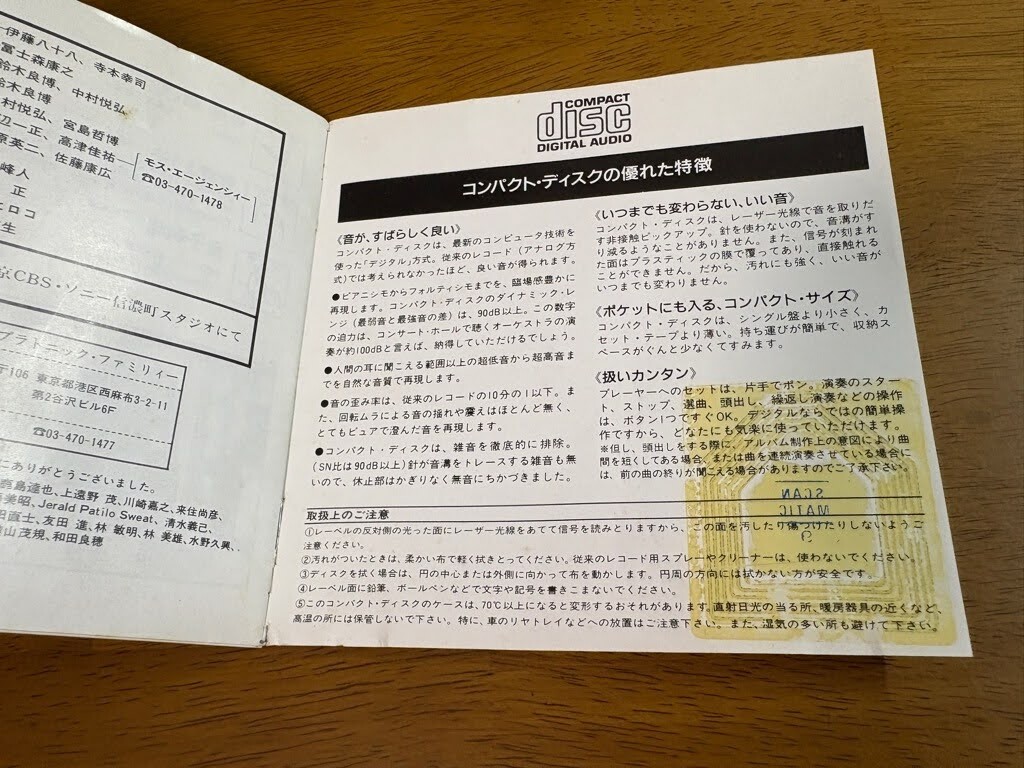 伊藤八十八、寺本幸司
冨士森康之
鈴木良博、中村悦弘
鈴木良博
村悦弘、宮島哲博
辺一正、高津佳祐
原英二、佐藤康広
モス・エージェンシィー
☎03-470-1478
峰人
正
ヒロコ
生
京CBS・ソニー信濃町スタジオにて
プラトニック・ファミリィー
〒106 東京都港区西麻布3-2-11
第2谷沢ビル6F
☎03-470-1477
にありがとうございました。
有島達也、上遠野 茂、川崎嘉之、来住尚彦、
美昭、Jerald Patilo Sweat、清水義己、
田直士、友田 進、林 敏明、林 美雄、水野久興、
山茂規、和田良穂
COMPACT
disc
DIGITAL AUDIO
コンパクト・ディスクの優れた特徴
《音が、すばらしく良い》
コンパクト・ディスクは、最新のコンピュータ技術を
使った「デジタル」方式。従来のレコード(アナログ方
式)では考えられなかったほど、良い音が得られます。
●ピアニシモからフォルティシモまでを、臨場感豊かに
再現します。コンパクト・ディスクのダイナミック・レ
ンジ(最弱音と最強音の差)は、90dB以上。この数字
の迫力は、コンサート・ホールで聴くオーケストラの演
奏が約100dBと言えば、納得していただけるでしょう。
●人間の耳に聞こえる範囲以上の超低音から超高音ま
でを自然な音質で再現します。
●音の歪み率は、従来のレコードの10分の1以下。ま
た、回転ムラによる音の揺れや震えはほとんど無く、
とてもピュアで澄んだ音を再現します。
●コンパクト・ディスクは、雑音を徹底的に排除。
(SN比は90dB以上)針が音溝をトレースする雑音も無
いので、休止部はかぎりなく無音にちかづきました。
《いつまでも変わらない、いい音》
コンパクト・ディスクは、レーザー光線で音を取りだ
す非接触ピックアップ。針を使わないので、音溝がす
り減るようなことがありません。また、信号が刻まれ
た面はプラスティックの膜で覆ってあり、直接触れる
ことができません。だから、汚れにも強く、いい音が
いつまでも変わりません。
《ポケットにも入る、コンパクト・サイズ》
コンパクト・ディスクは、シングル盤より小さく、カ
セット・テープより薄い。持ち運びが簡単で、収納ス
ペースがぐんと少なくてすみます。
《扱いカンタン》
プレーヤーへのセットは、片手でポン。演奏のスター
ト、ストップ、選曲、頭出し、繰返し演奏などの操作
は、ボタン1つですぐOK。デジタルならではの簡単操
作ですから、どなたにも気楽に使っていただけます。
※但し、頭出しをする際に、アルバム制作上の意図により曲
間を短くしてある場合、または曲を連続演奏させている場合に
は、前の曲の終りが聞こえる場合がありますのでご了承下さい。
SCAN
MATIC
取扱上のご注意
①レーベルの反対側の光った面にレーザー光線をあてて信号を読みとりますから、この面を汚したり傷つけたりしないようご
注意ください。
②汚れがついたときは、柔かい布で軽く拭きとってください。従来のレコード用スプレーやクリーナーは、使わないでください。
③ディスクを拭く場合は、円の中心または外側に向かって布を動かします。円周の方向には拭かない方が安全です。
④レーベル面に鉛筆、ボールペンなどで文字や記号を書きこまないでください。
⑤このコンパクト・ディスクのケースは、70℃以上になると変形するおそれがあります。直射日光の当る所、暖房器具の近くなど、
高温の所には保管しないで下さい。特に、車のリヤトレイなどへの放置はご注意下さい。また、湿気の多い所も避けて下さい。